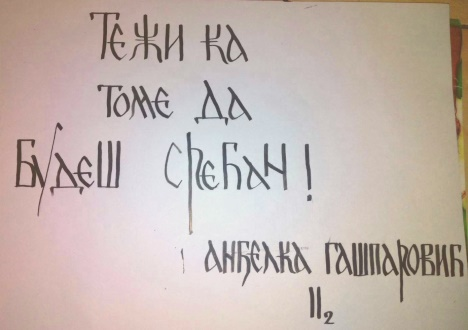 Тежи ка
томе да
будеш срећан!
Анђелка Гашпаровић
II2